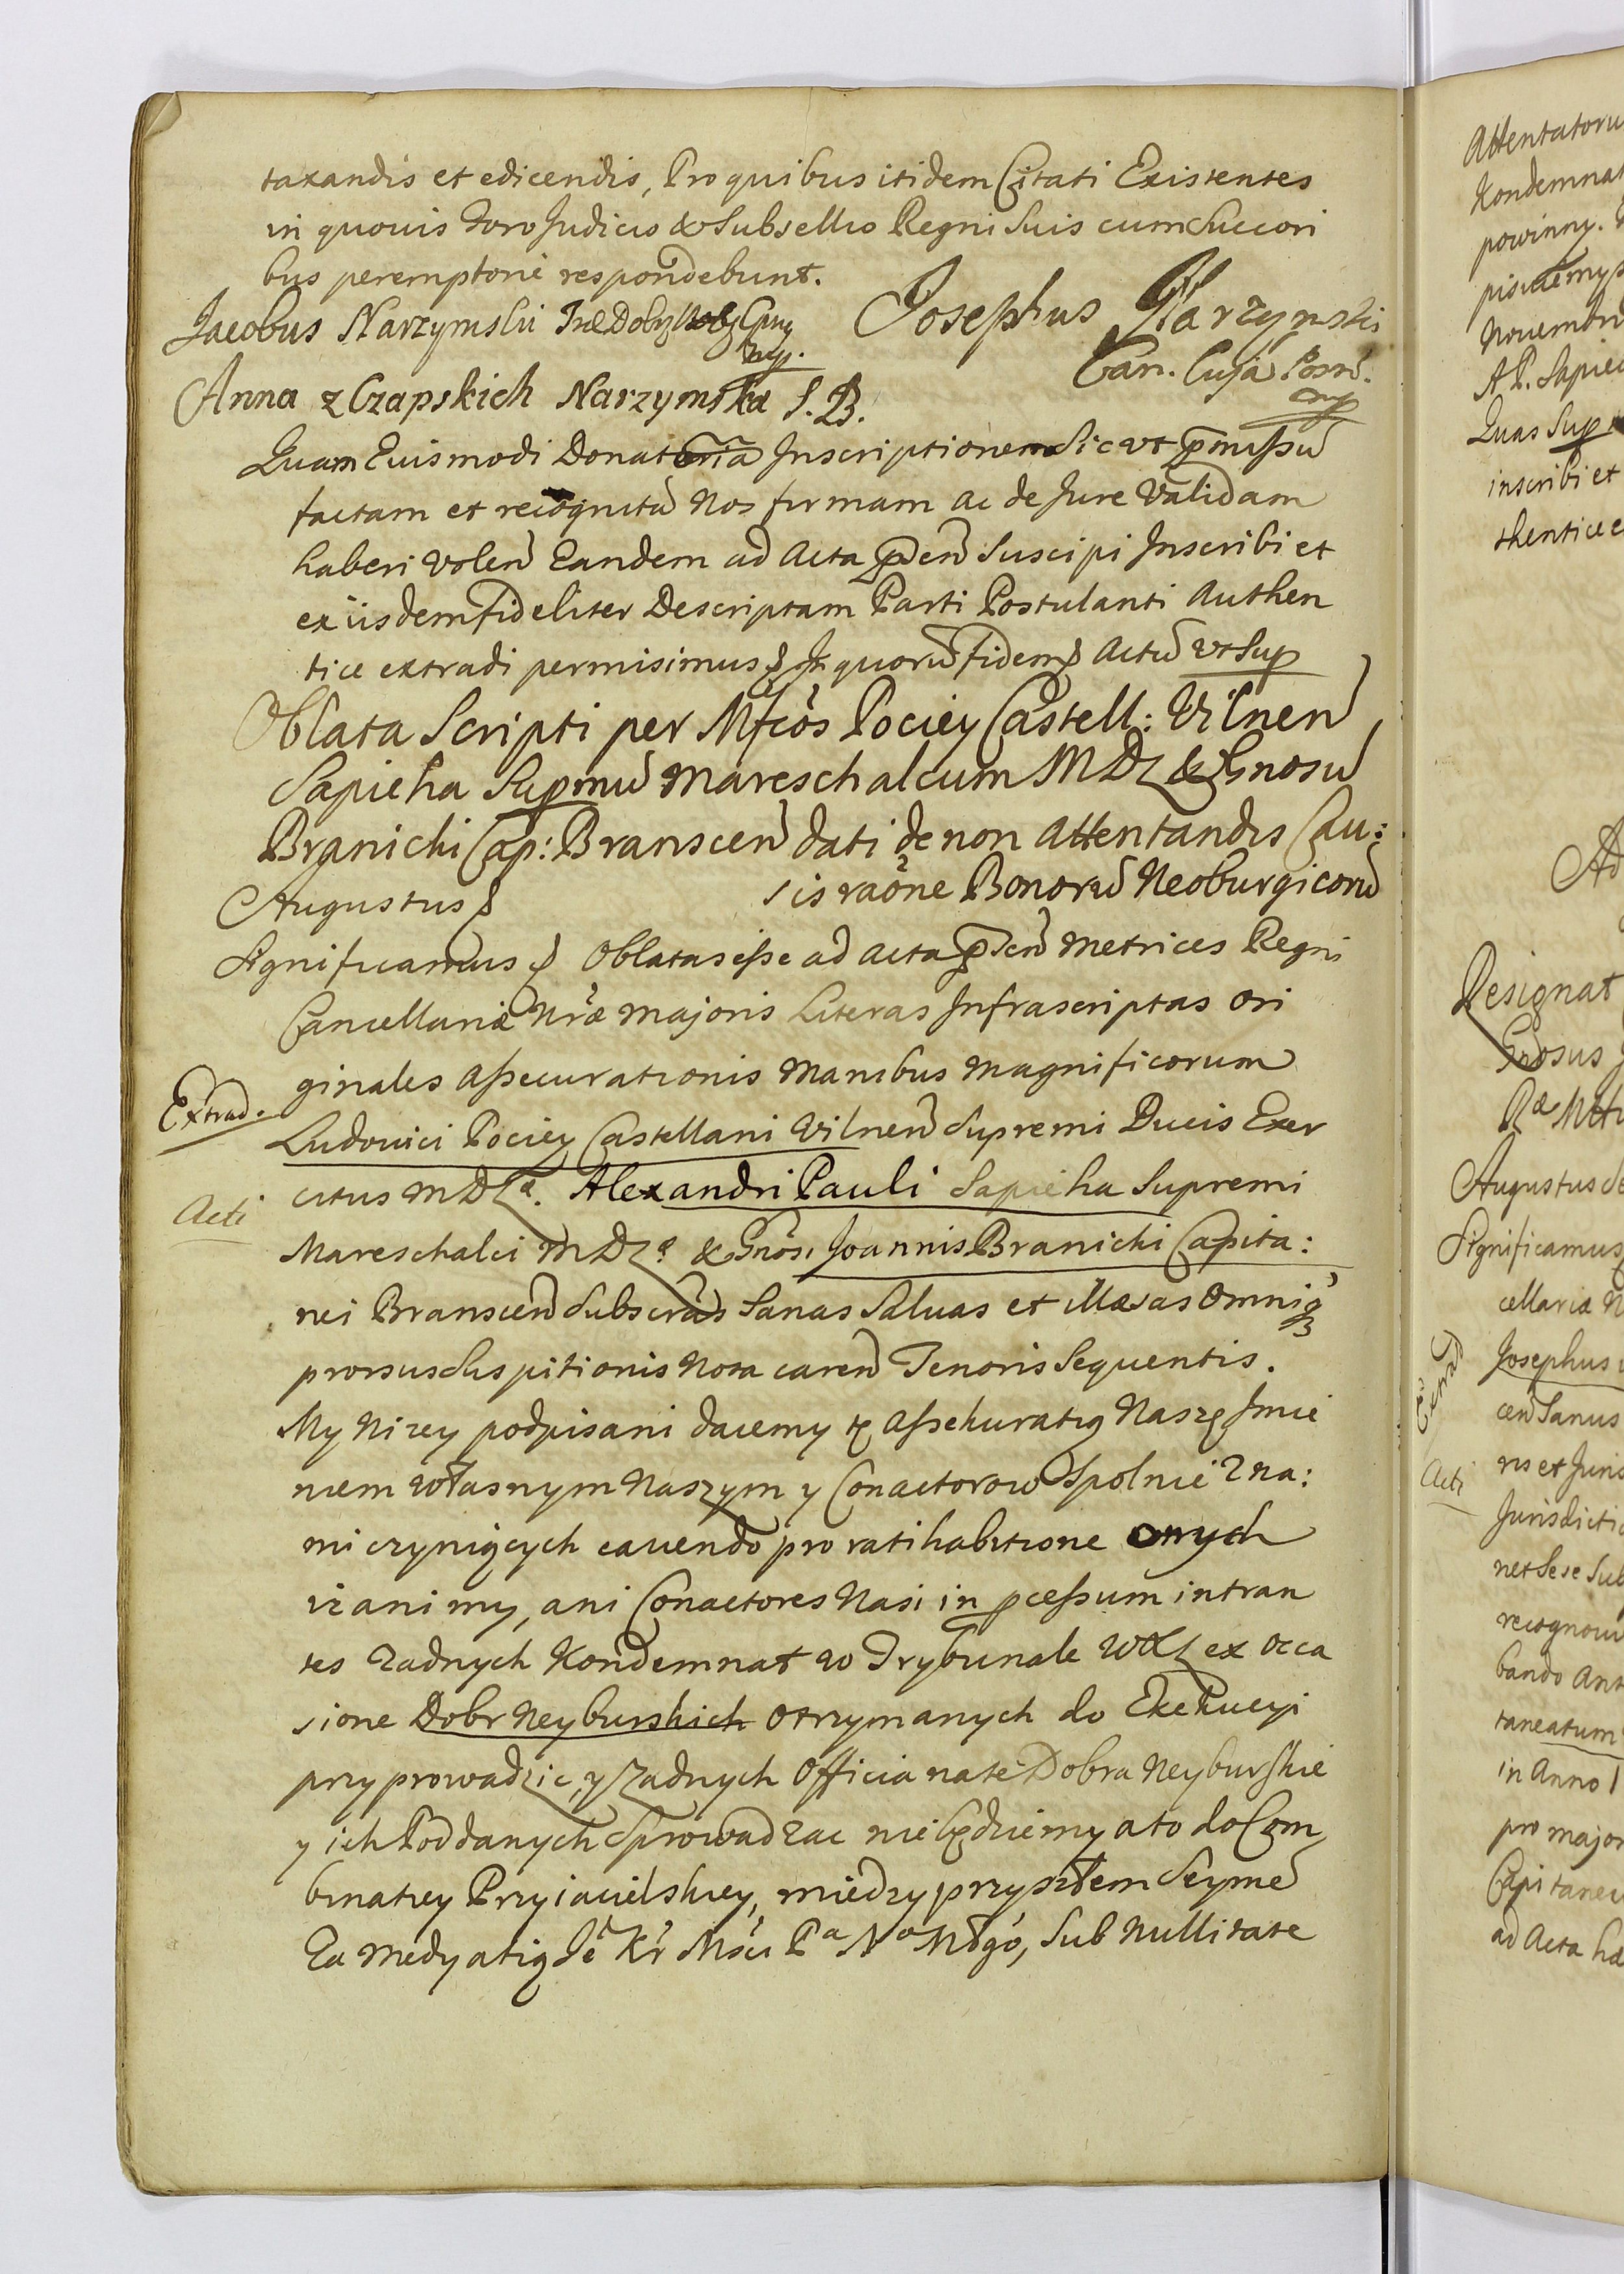 taxandis et edicendis, Pro quibus itidem Citati Existentes
in quovis Foro Judicio & Subsellio Regni Suis cum Succori
bus peremptorie respondebunt.
Jacobus Narzymski
Josephus Narzymski
Can. Cuja Posn.
mp
Anna z Czapskich Narzymska S. B.
Quam Euismodi Donatoria Inscriptionem Sic vt pmissũ
factam et recognitã Nos firmam ac de Jure Validam
haberi volen Eandem ad Acta pñsen Suscipi Inscribi et
ex iisdem fideliter Descriptam Parti Postulanti Authen
tice extradi permisimus In quorũ fidem Actũ vt Sup
Oblata Scripti per Mfcos Pociey Castell: Vilnen
Sapieha Supmũ Mareschalcum MDL & Gnosũ
Branichi Cap: Branscen dati de non Attentandis Cau:
sis raõne Bonorũ Neoburgicorũ
Augustus
Significamus Oblatas esse ad acta pñsen Metrices Regni
Cancellariæ Nræ Majoris Literas Infrascriptas Ori
ginales Assecurationis Manibus Magnificorum
Extrad.
Ludovici Pociey Castellani Vilnen Supremi Ducis Exer
Acti
citus MDLæ. Alexandri Pauli Sapieha Supremi
Mareschalci MDLæ & Gnosi Joannis Branichi Capita:
nei Branscen Subscras Sanas Salvas et illæsas Omniq3
prorsus Suspitionis Nota caren Tenoris Sequentis.
My Nizey podpisani daiemy tę Assekuratią Naszę Imie
niem własnym Naszym y Conactorow Spolnie z na:
mi czyniących cavendo pro ratihabitione onych
iz ani my, ani Conactores Nasi in pcessum intran
tes zadnych Kondemnat w Trybunale WXL ex occa
sione Dobr Neyburskich otrzymanych do Exekucyi
przyprowadzic, y zadnych Officia na te Dobra Neyburskie
y ich Poddanych Sprowadzac nie będziemy a to do Com
binatiey Przyiacielskiey, miedzy przyszłem Seymẽ
Za Medyatią Je Kr Msci Pa No Młgo, Sub Nullitate
Attentatoru
Kondemnat
powinny.
Novembr
A P. Sapieh
Quas Sup
inscribi et
thentice e
Ad
Designat
Gnosus
Augustus Se
Significamus
cellariæ N
Extrad
Josephus
cen Sanus
Acti
ris et Juris
Jurisdictio
net Sese Sub
recognovi
bando Ant
taneatum
in Anno 1
pro major
Capitaneu
ad Acta hæ